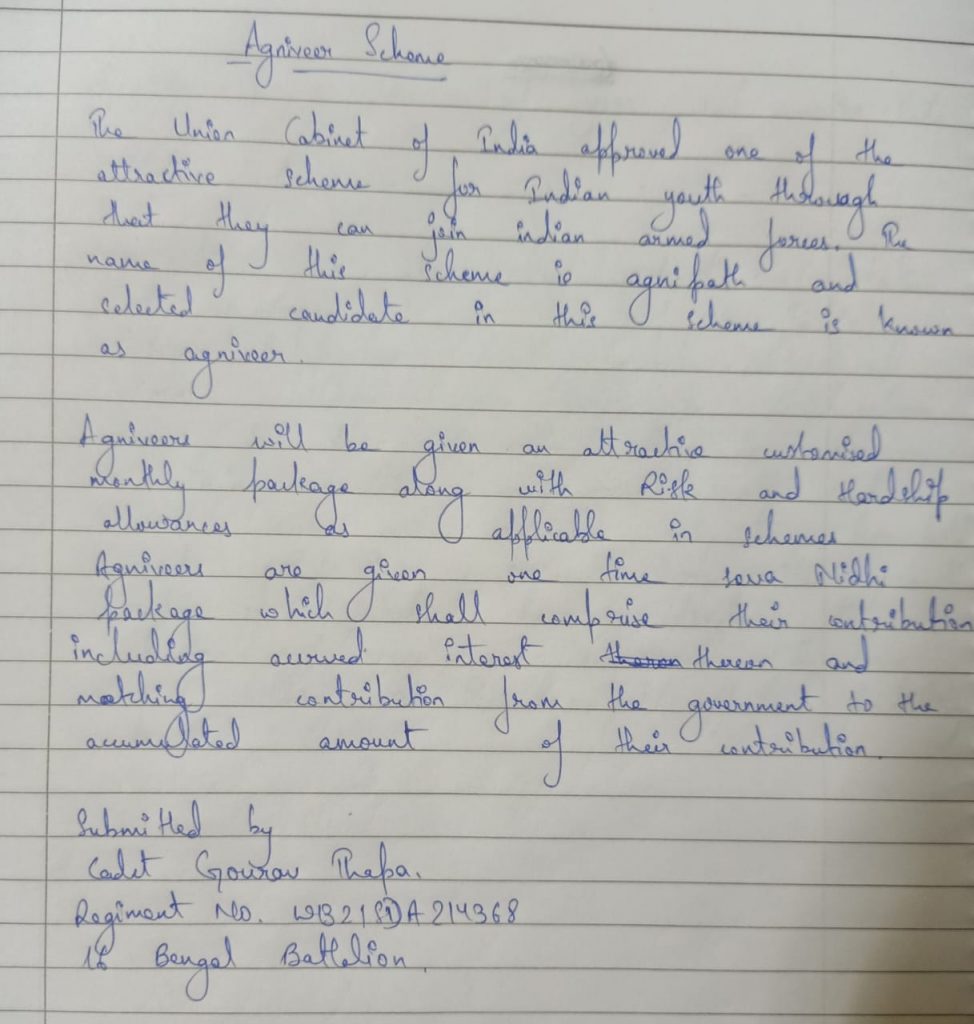 Agniveer Scheme
The Union Cabinet of India approved one of the
attractive scheme for Indian youth thorough
that they can join indian armed forces. The
name of this scheme is agnipath and
selected candidate in this scheme is known
as agniveer.
Agniveers will be given an attractive customised
monthly package along with Risk and Hardship
allowances as applicable in schemes
Agniveers are given one time seva Nidhi
package which shall comprise their contribution
including accrued interest thereon and
matching contribution from the government to the
accumulated amount of their contribution.
Submitted by
Cadet Gourav Thapa.
Regiment No. WB21SDA214368
Bengal Battalion.